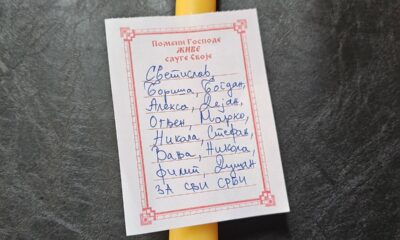 Помени Господе
ЖИВЕ
слуге Своје
Светислав
Бориша, Богдан,
Алекса, Дејан,
Огњен, Марко,
Никола, Стефан,
Вања, Никола,
Филип, Душан
ЗА СВИ СРБИ